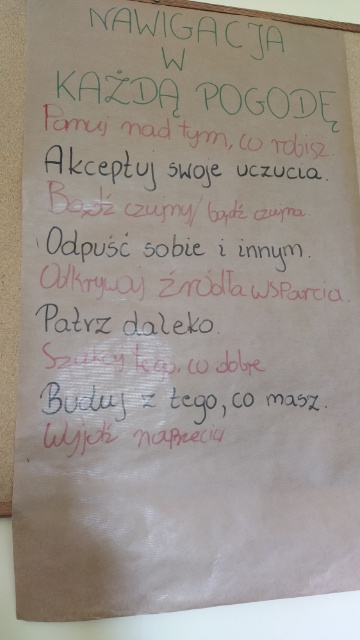 NAWIGACJA
W
KAŻDĄ POGODĘ
Panuj nad tym, co robisz.
Akceptuj swoje uczucia.
Bądź czujny/bądź czujna
Odpuść sobie i innym.
Odkrywaj źródła wsparcia.
Patrz daleko.
Szukaj tego, co dobre
Buduj z tego, co masz.
Wyjdź naprzeciw